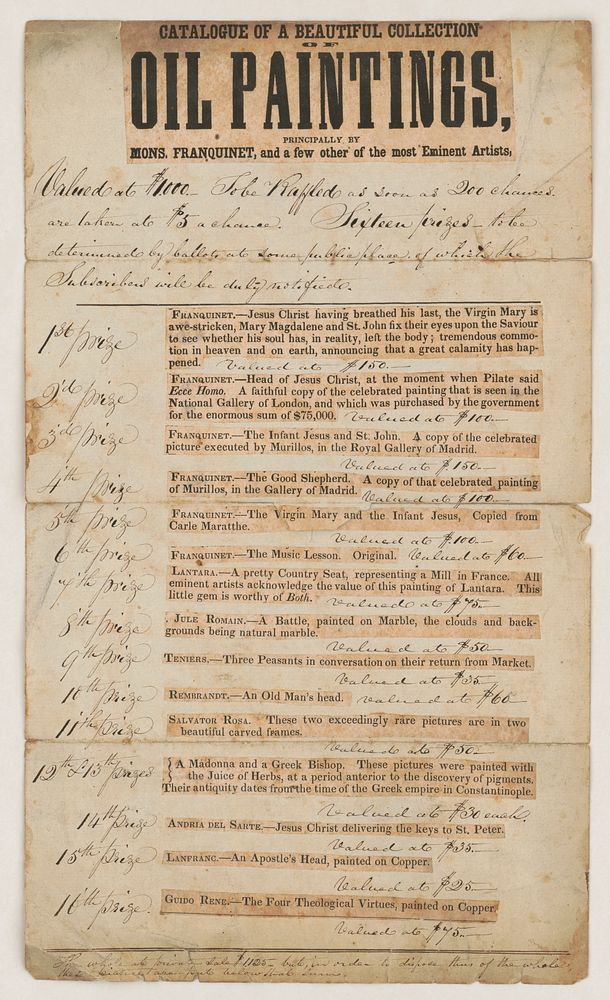 CATALOGUE OF A BEAUTIFUL COLLECTION
OF
OIL PAINTINGS,
PRINCIPALLY BY
MONS. FRANQUINET, and a few other of the most Eminent Artists,
Valued at $1000 – To be Raffled as soon as 200 chances
are taken at $5 a chance. Sixteen prizes – to be
determined by ballots at some public place of which the
Subscribers will be duly notified.
1st prize
FRANQUINET.—Jesus Christ having breathed his last, the Virgin Mary is
awe-stricken, Mary Magdalene and St. John fix their eyes upon the Saviour
to see whether his soul has, in reality, left the body; tremendous commo-
tion in heaven and on earth, announcing that a great calamity has hap-
pened. Valued at $150.—
2d prize
FRANQUINET.—Head of Jesus Christ, at the moment when Pilate said
Ecce Homo. A faithful copy of the celebrated painting that is seen in the
National Gallery of London, and which was purchased by the government
for the enormous sum of $75,000. Valued at $100.—
3d prize
FRANQUINET.—The Infant Jesus and St. John. A copy of the celebrated
picture executed by Murillos, in the Royal Gallery of Madrid.
Valued at $150.—
4th prize
FRANQUINET.—The Good Shepherd. A copy of that celebrated painting
of Murillos, in the Gallery of Madrid. Valued at $100.—
5th prize
FRANQUINET.—The Virgin Mary and the Infant Jesus, Copied from
Carle Maratthe.
Valued at $100.—
6th prize
FRANQUINET.—The Music Lesson. Original. Valued at $60—
7th prize
LANTARA.—A pretty Country Seat, representing a Mill in France. All
eminent artists acknowledge the value of this painting of Lantara. This
little gem is worthy of Both. Valued at $75—
8th prize
JULE ROMAIN.—A Battle, painted on Marble, the clouds and back-
grounds being natural marble.
Valued at $50—
9th prize
TENIERS.—Three Peasants in conversation on their return from Market.
Valued at $35—
10th prize
REMBRANDT.—An Old Man's head. Valued at $60—
11th prize
SALVATOR ROSA. These two exceedingly rare pictures are in two
beautiful carved frames.
Valued at $50—
12th & 13th prizes
{ A Madonna and a Greek Bishop. These pictures were painted with
the Juice of Herbs, at a period anterior to the discovery of pigments.
Their antiquity dates from the time of the Greek empire in Constantinople.
Valued at $30 each.
14th prize
ANDRIA DEL SARTE.—Jesus Christ delivering the keys to St. Peter.
Valued at $35—
15th prize
LANFRANC.—An Apostle's Head, painted on Copper.
Valued at $25—
16th prize.
GUIDO RENE.—The Four Theological Virtues, painted on Copper.
Valued at $75—
The whole at private sale $1125 – but in order to dispose thus of the whole
the chances are put below that sum.